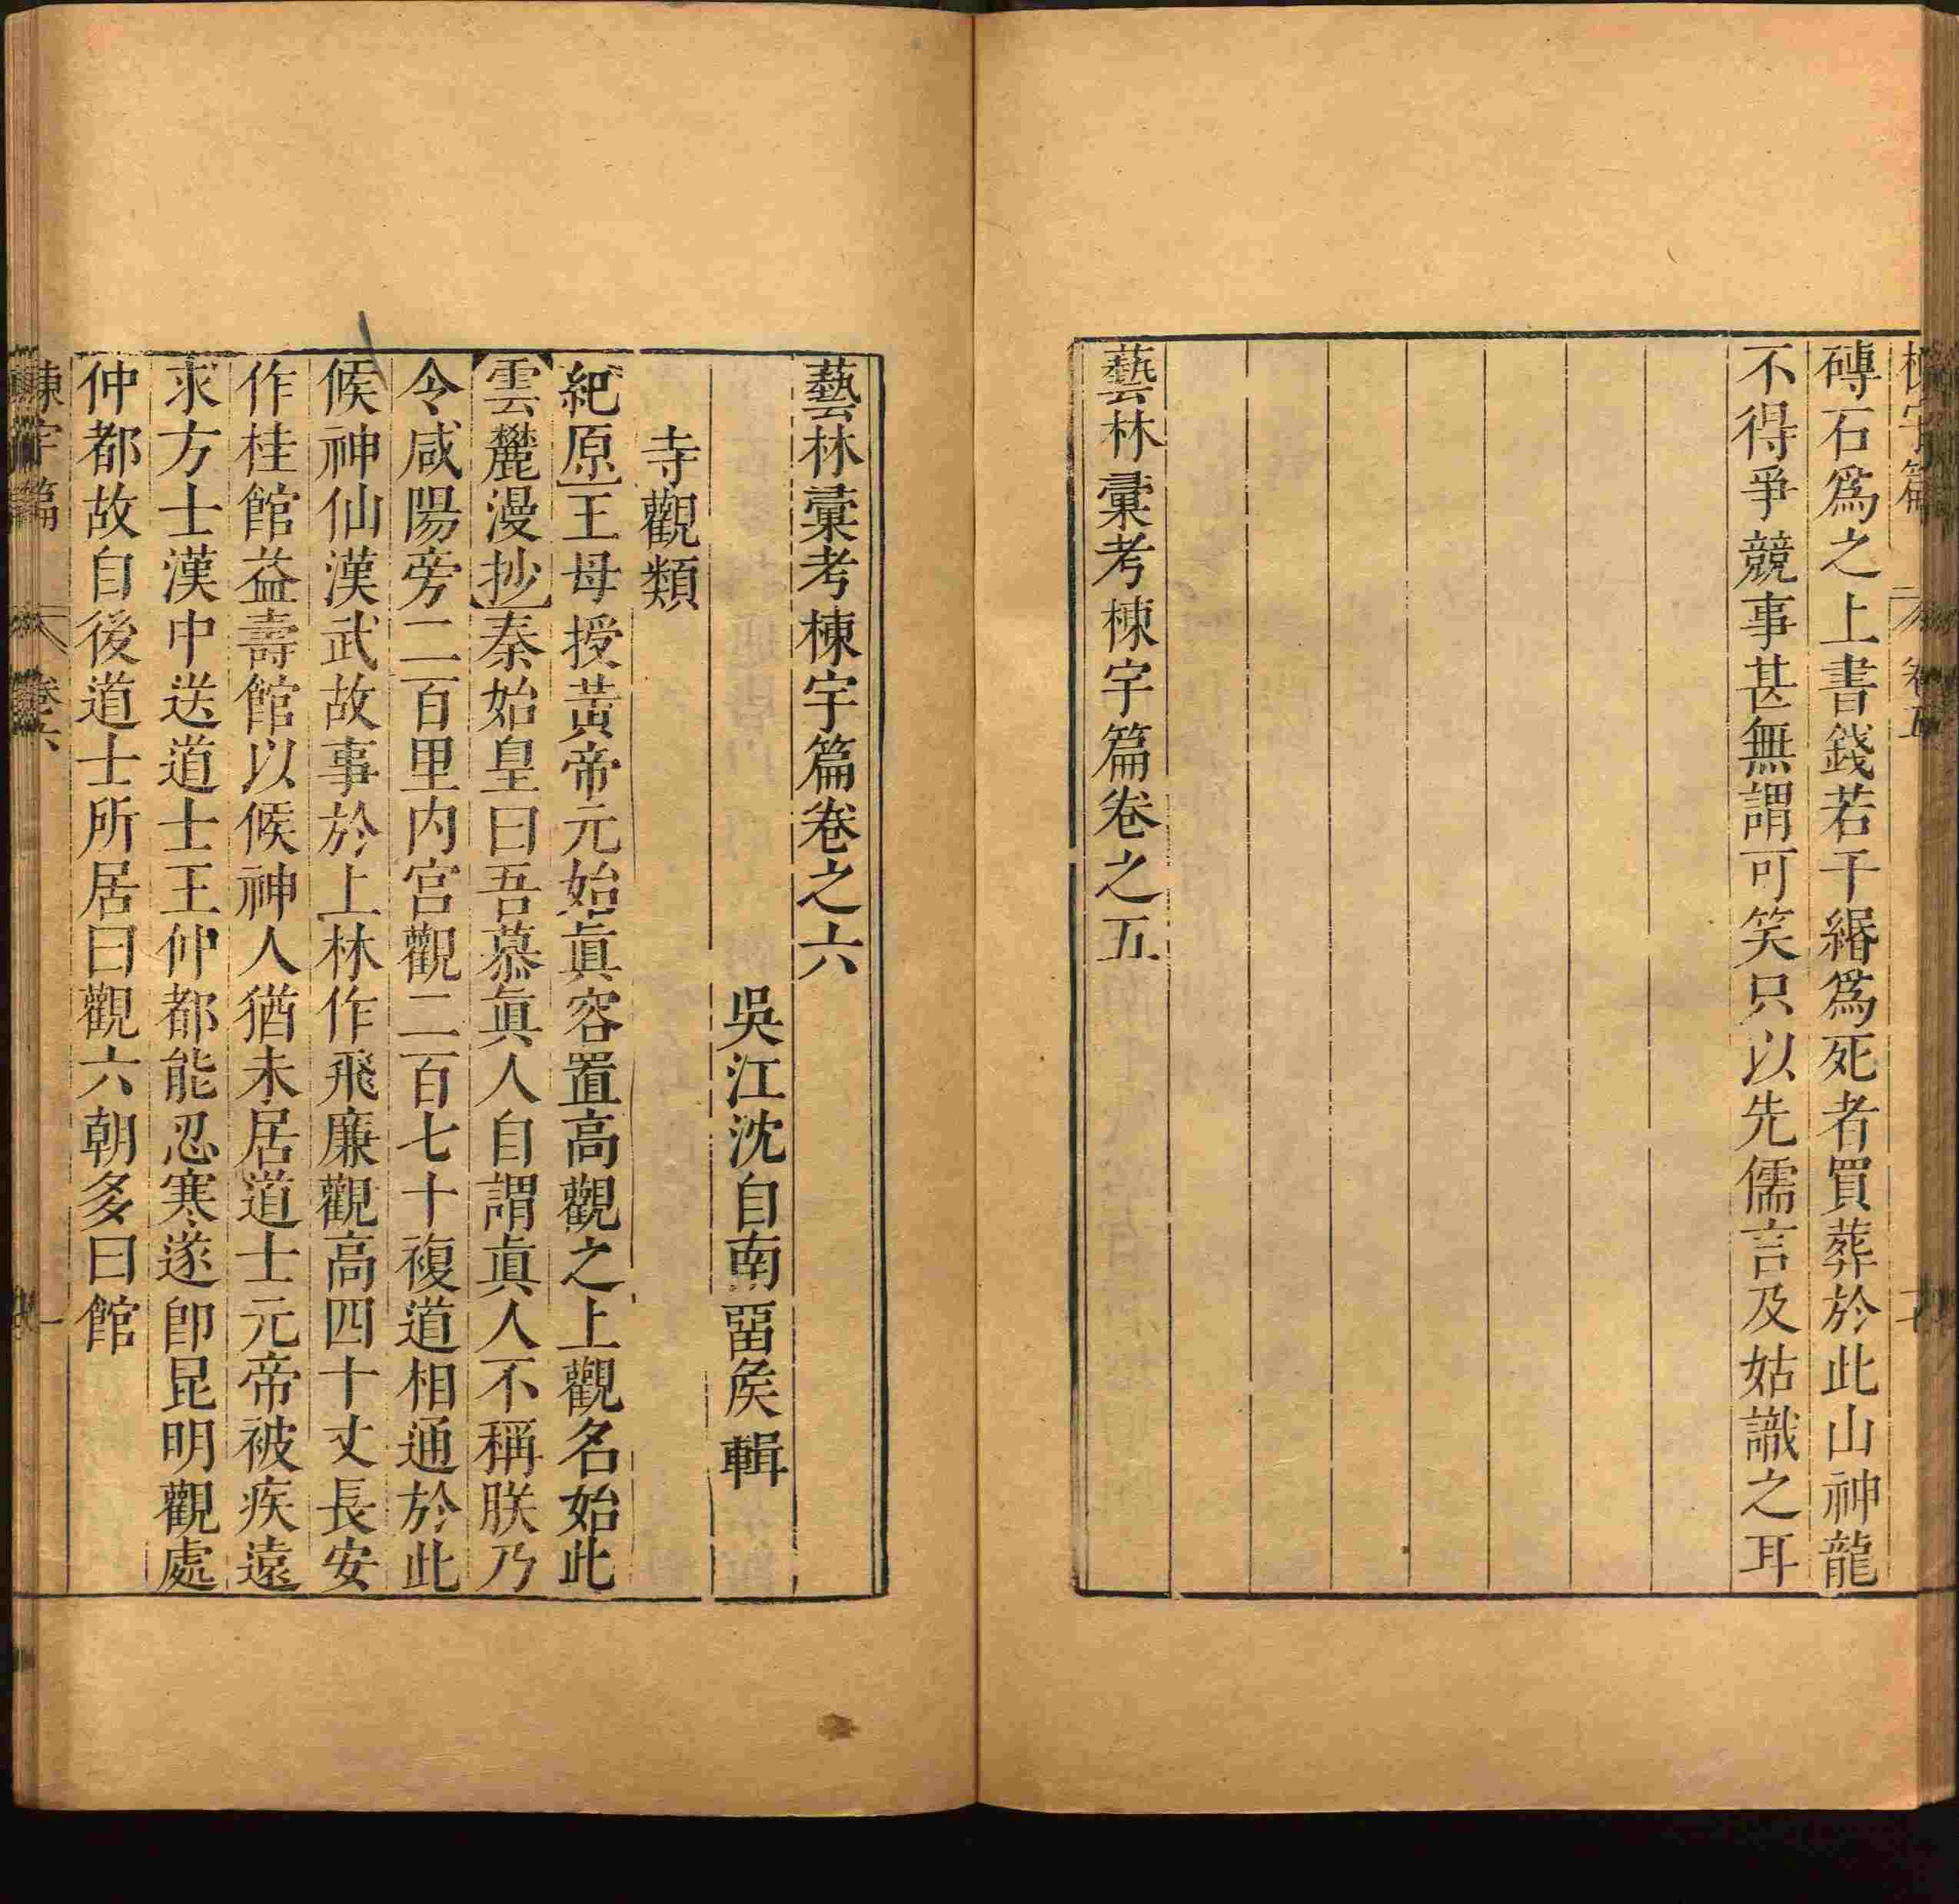 棟宇篇 卷五
磚石爲之上書錢若干緡爲死者買葬於此山神龍
不得爭競事甚無謂可笑只以先儒言及姑識之耳
藝林彚考棟宇篇卷之五
藝林彚考棟宇篇卷之六
吳江沈自南畱矦輯
寺觀類
紀原王母授黃帝元始眞容置高觀之上觀名始此
雲麓漫抄秦始皇曰吾慕眞人自謂眞人不稱朕乃
令咸陽旁二百里内宮觀二百七十複道相通於此
候神仙漢武故事於上林作飛廉觀高四十丈長安
作桂館益壽館以候神人猶未居道士元帝被疾遠
求方士漢中送道士王仲都能忍寒遂卽昆明觀處
仲都故自後道士所居曰觀六朝多曰館
棟宇篇 卷六 一